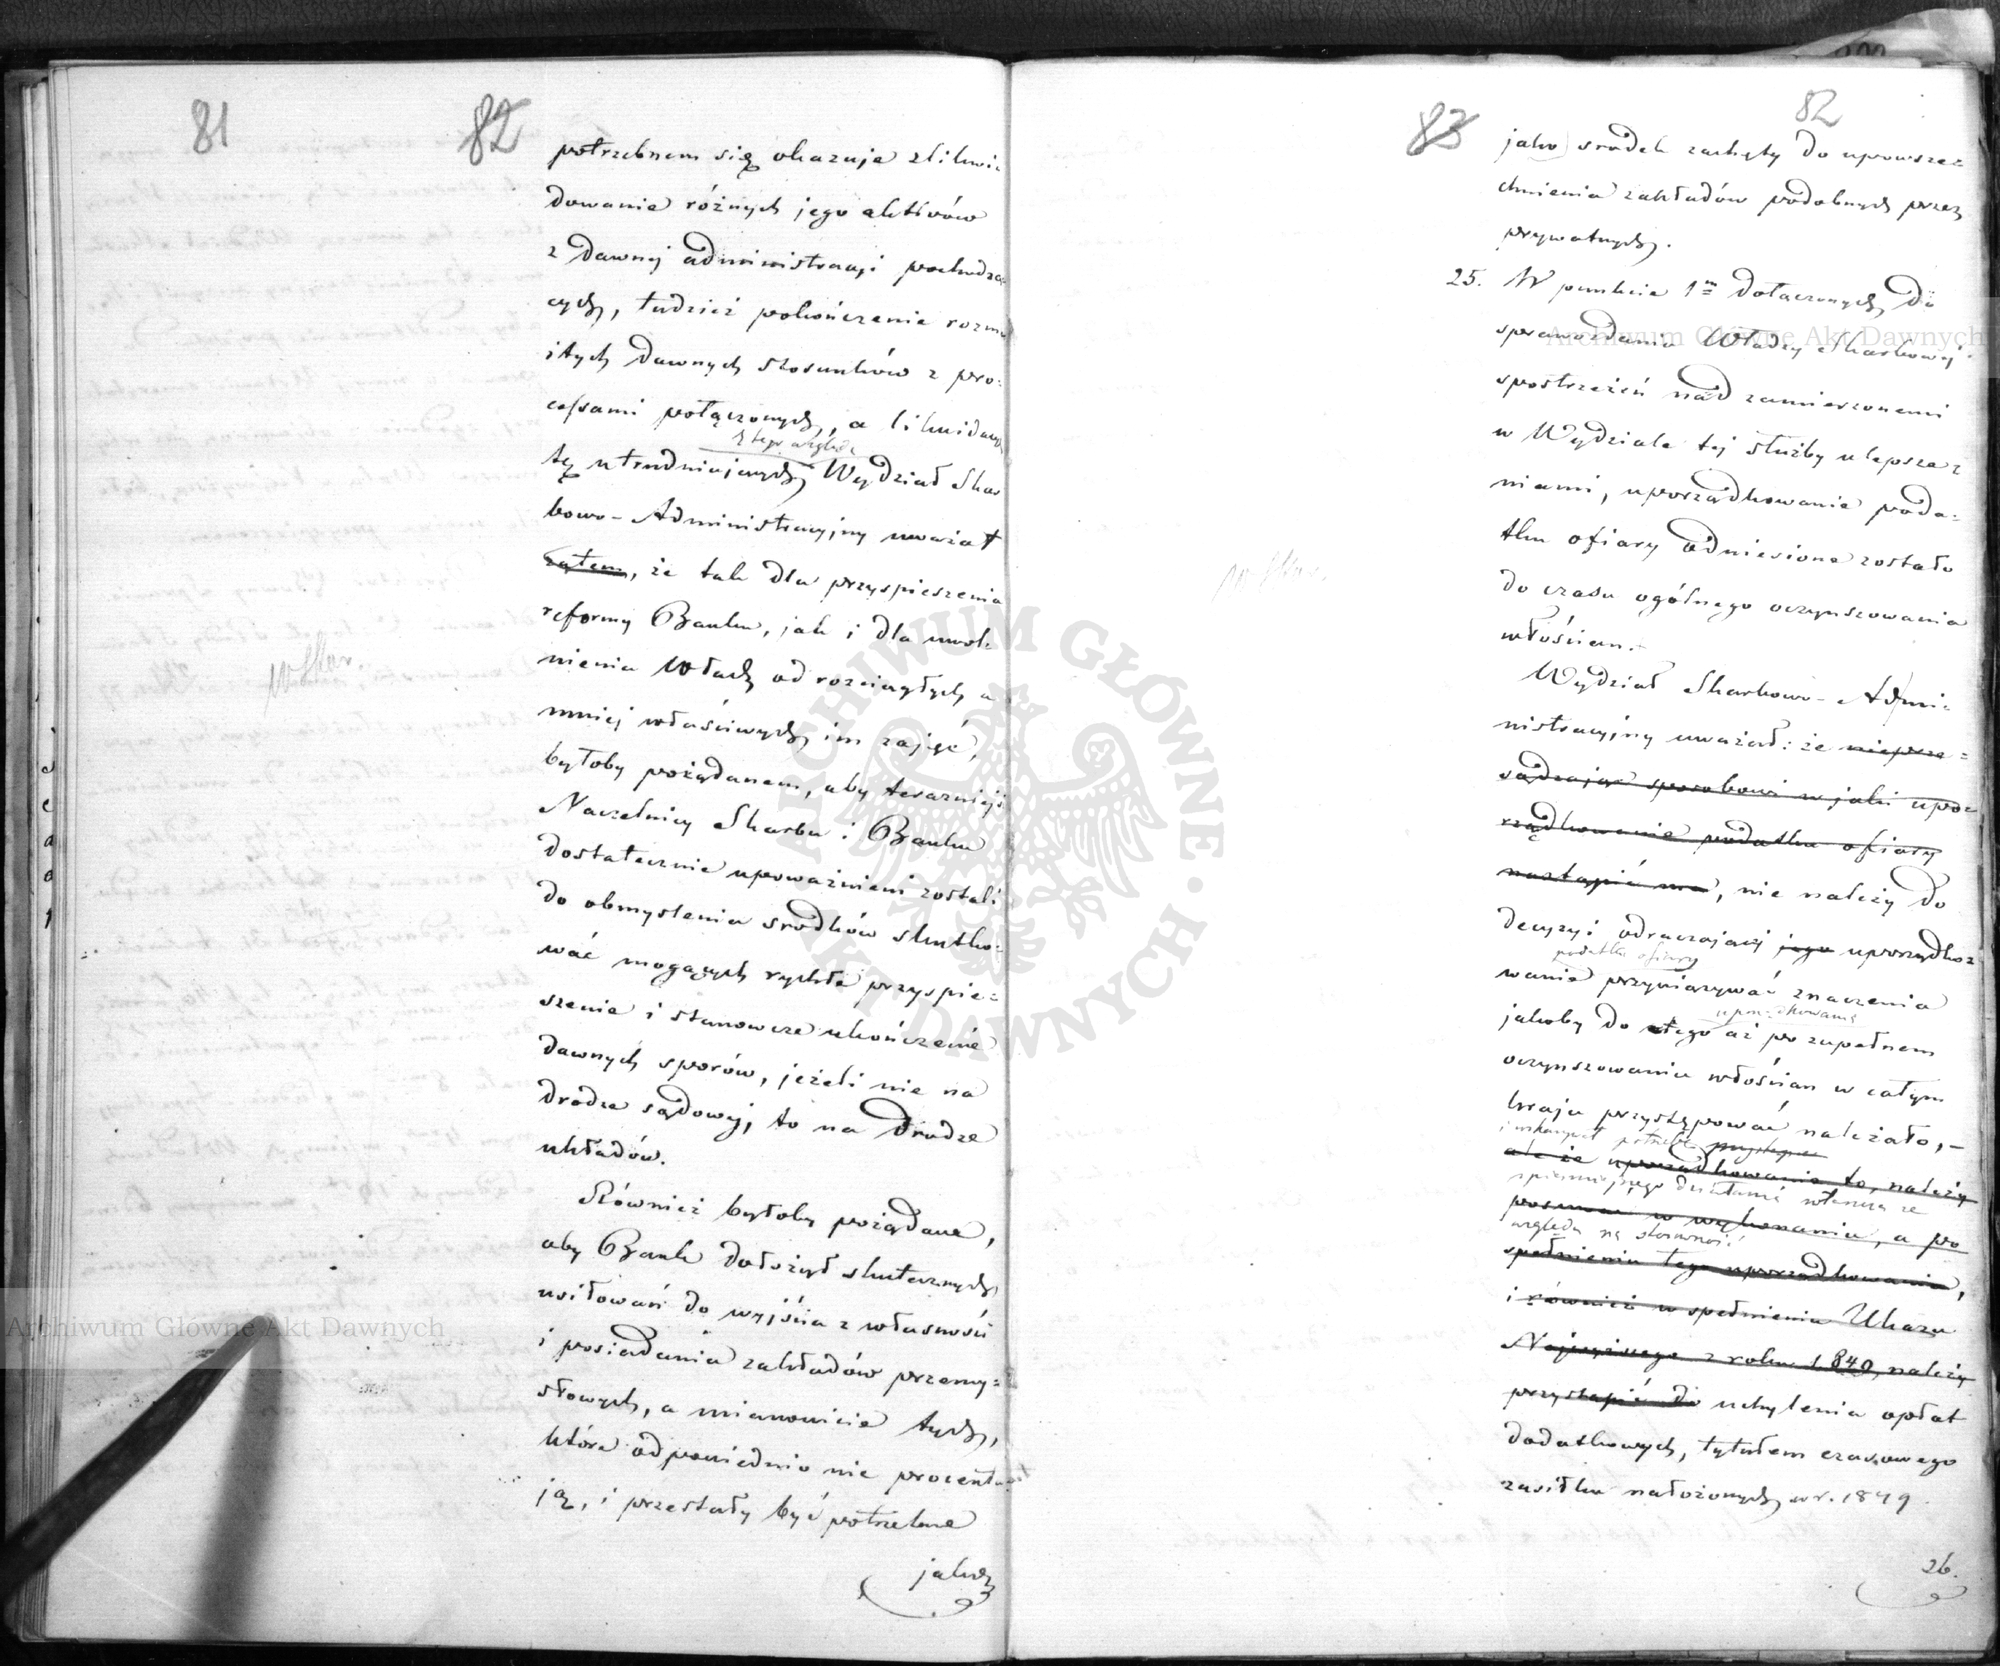 81
82
potrzebnem się okazuje zlikwi-
dowanie różnych jego aktivów
z dawnej administracyi pochodzą-
cych, tudzież pokończenie rozma
itych dawnych stosunków z pro-
cessami połączonych, a likwidacyę
z tego względu
tę utrudniających, Wydział Skar
bowo-Administracyjny uważał
zatem, że tak dla przyspieszenia
reformy Banku, jak i dla uwol-
nienia Władz od rozciągłych a
mniej właściwych im zajęć,
byłoby pożądanem, aby teraźniejsi
Naczelnicy Skarbu i Banku
dostatecznie upoważnieni zostali
do obmyslenia srodków skutko-
wać mogących rychłe przyspie-
szenie i stanowcze ukończenie
dawnych sporów, jeżeli nie na
drodze sądowej, to na drodze
układów.
Również byłoby pożądane,
aby Bank dołożył skutecznych
usiłowań do wyjścia z własności
i posiadania zakładów przemy-
słowych, a mianowicie tych,
które odpowiednio nie procentu-
ją, i przestały być potrzebne
jako
83
82
jako srodek zachęty do upowsze-
chnienia zakładów podobnych przez
prywatnych.
25. W punkcie 1m dołączonych do
sprawozdania Władzy Skarbowej
spostrzeżeń nad zamierzonemi
w Wydziale tej służby ulepsze-
niami, uporządkowanie poda-
tku ofiary odniesione zostało
do czasu ogólnego oczynszowania
włościan.
Wydział Skarbowo-Admi-
nistracyjny uważał: że nieprze-
sądzając sposobowi w jaki upo-
rządkowanie podatku ofiary
nastąpić ma, nie należy do
decyzyi odraczającej jego uporządko-
podatku ofiary
wanie przywiązywać znaczenia
uporządkowania
jakoby do tego aż po zupełnem
oczynszowaniu włościan w całym
kraju przystępować należało,-
i wskazywał potrzebę przystąpi
ale że uporządkowanie to, należy
spieszniejszego działania w tem ze
posuwać w wykonaniu, a po
względu na stosowność
spełnieniu tego uporządkowania,
i również w spełnieniu Ukazu
Najwyższego z roku 1840, należy
przystąpić do uchylenia opłat
dodatkowych, tytułem czasowego
zasiłku nałożonych w r. 1849.
26.
Archiwum Główne Akt Dawnych
Archiwum Główne Akt Dawnych
ARCHIWUM GŁÓWNE AKT DAWNYCH